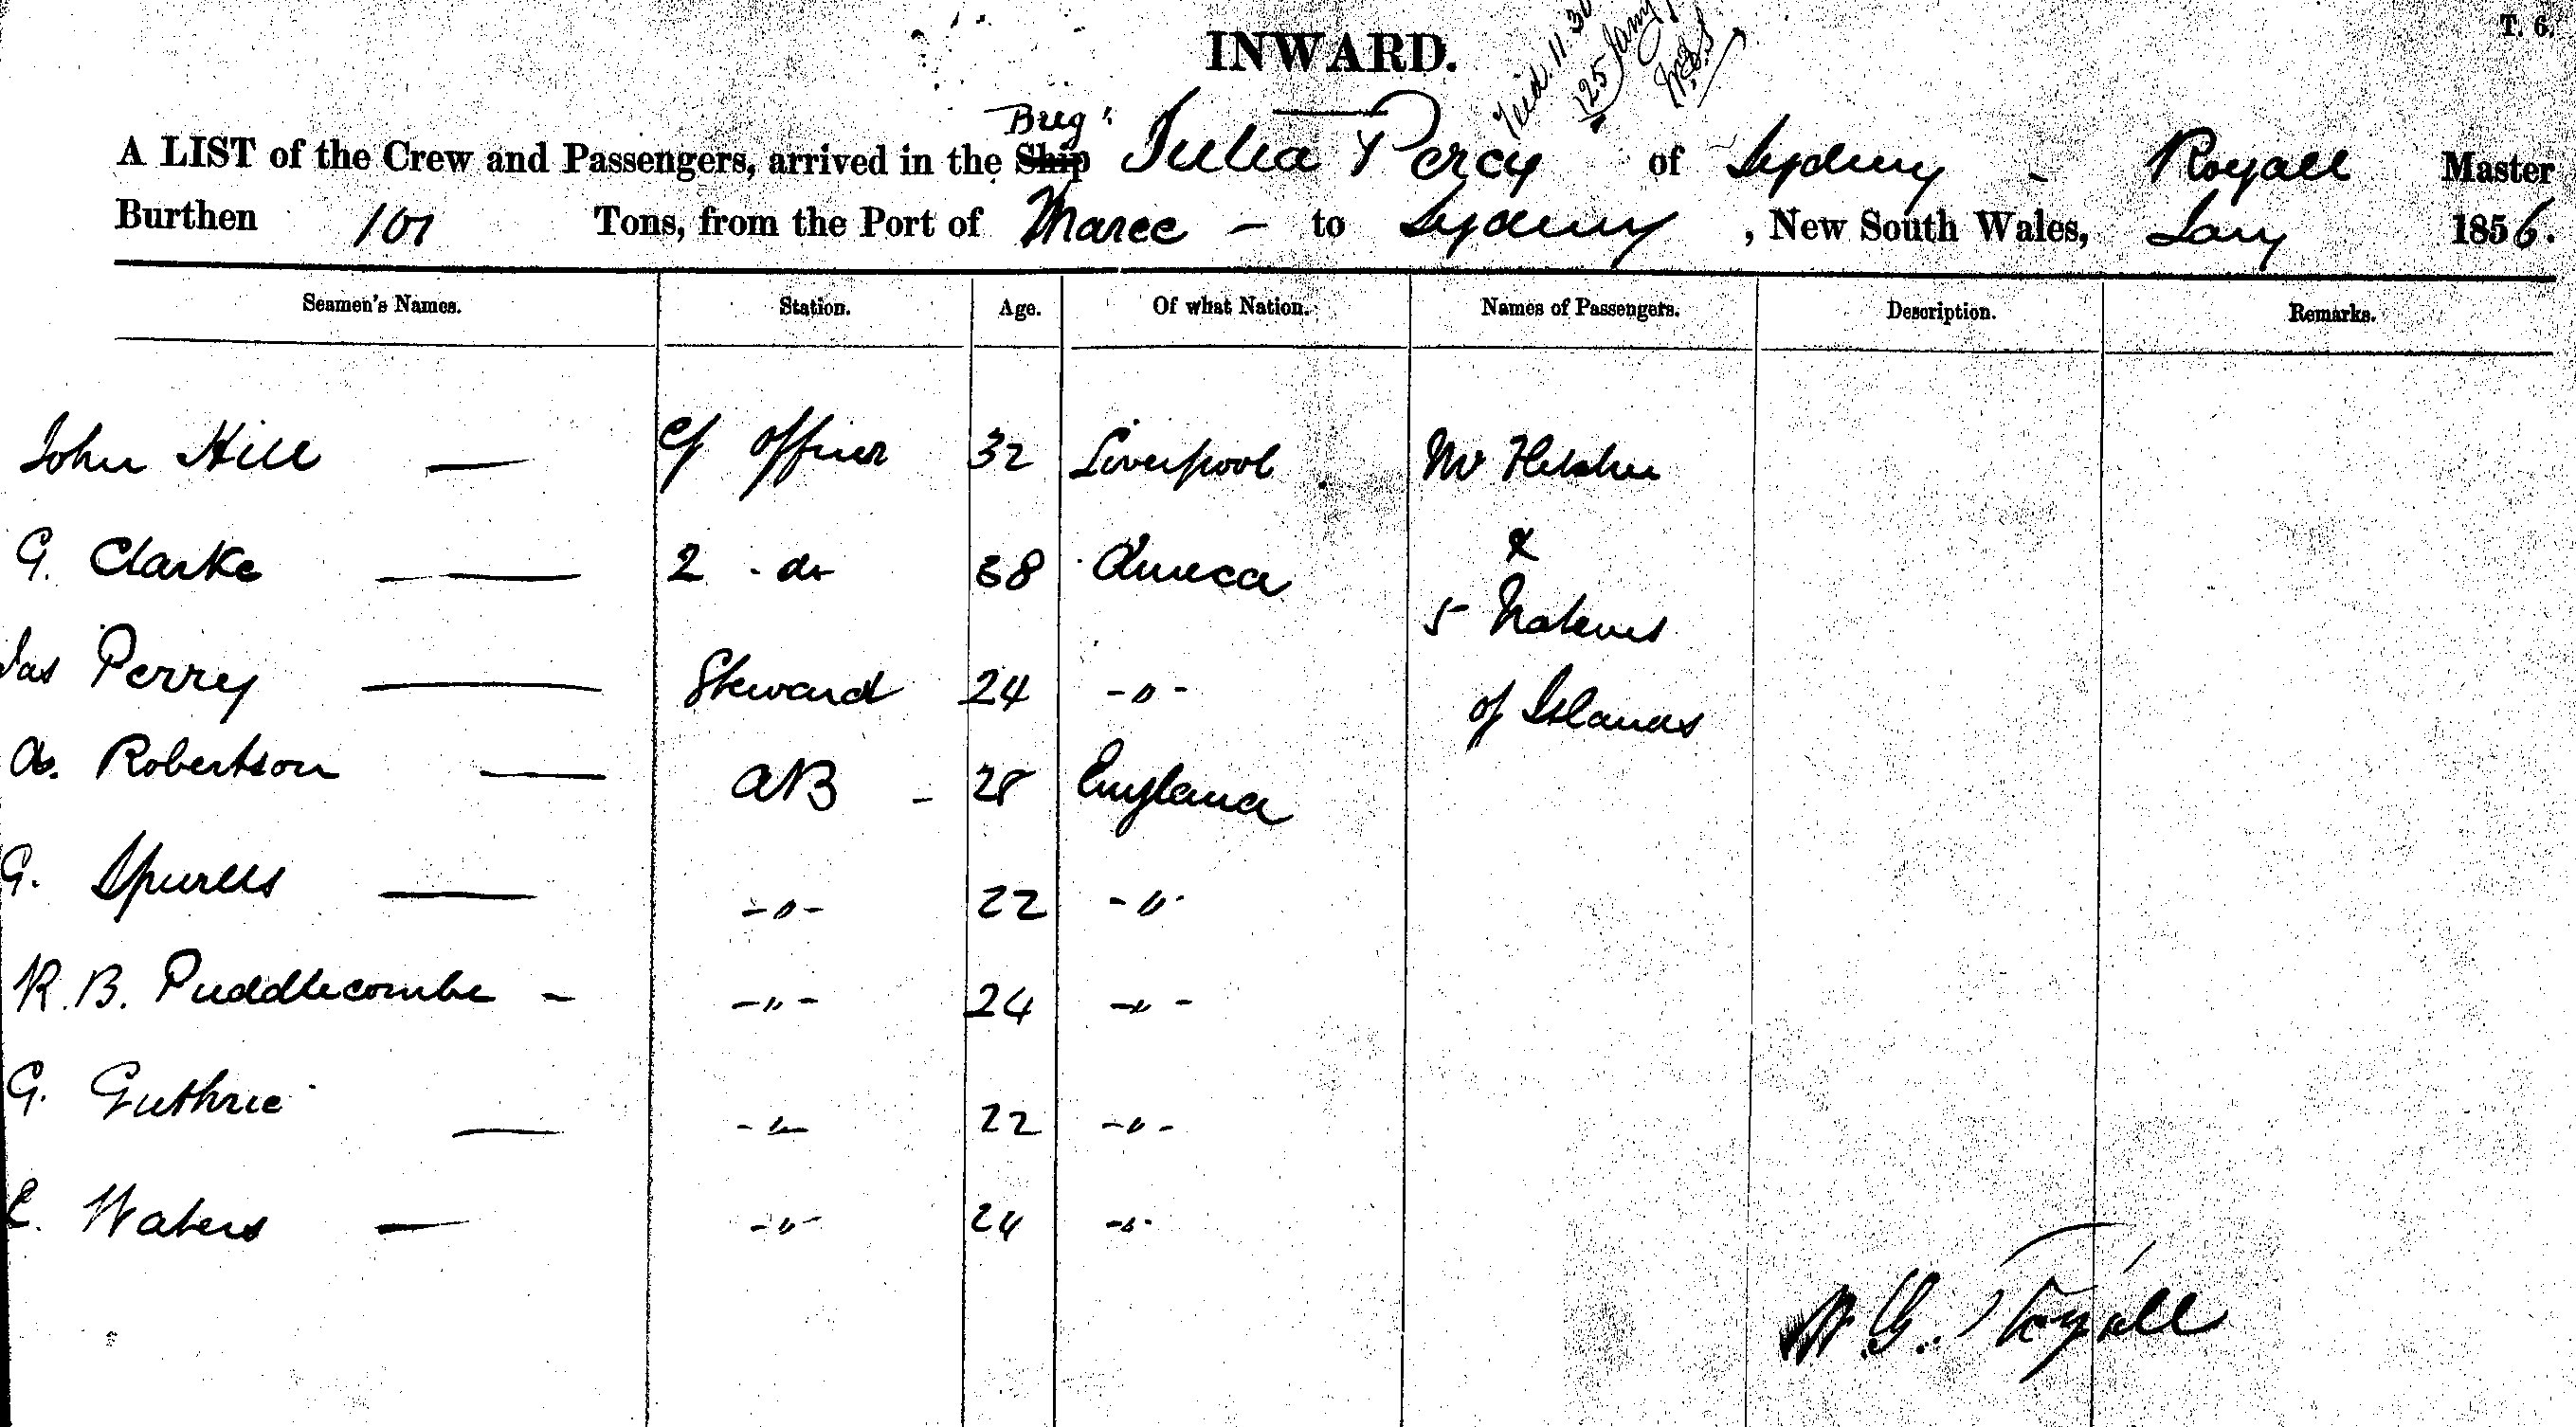 T. 6.
INWARD.
25 Jany
Brig
A LIST of the Crew and Passengers, arrived in the Ship Julia Percy of Sydney - Royall Master
Burthen 101 Tons, from the Port of Maree - to Sydney, New South Wales, Jany 1856.
Seamen's Names. Station. Age. Of what Nation. Names of Passengers. Description. Remarks.
John Hill — Cf Officer 32 Liverpool Mr
G. Clarke — 2 do 38 America &
5 Natives
Jas Perry — Steward 24 -"-
of Islands
A. Robertson — AB - 28 England
G. Spurlls — -"- 22 -"-
R. B. Puddlecombe - -"- 24 -"-
G. Guthrie — -"- 22 -"-
E. Waters — -"- 24 -"-
W. G. Royall